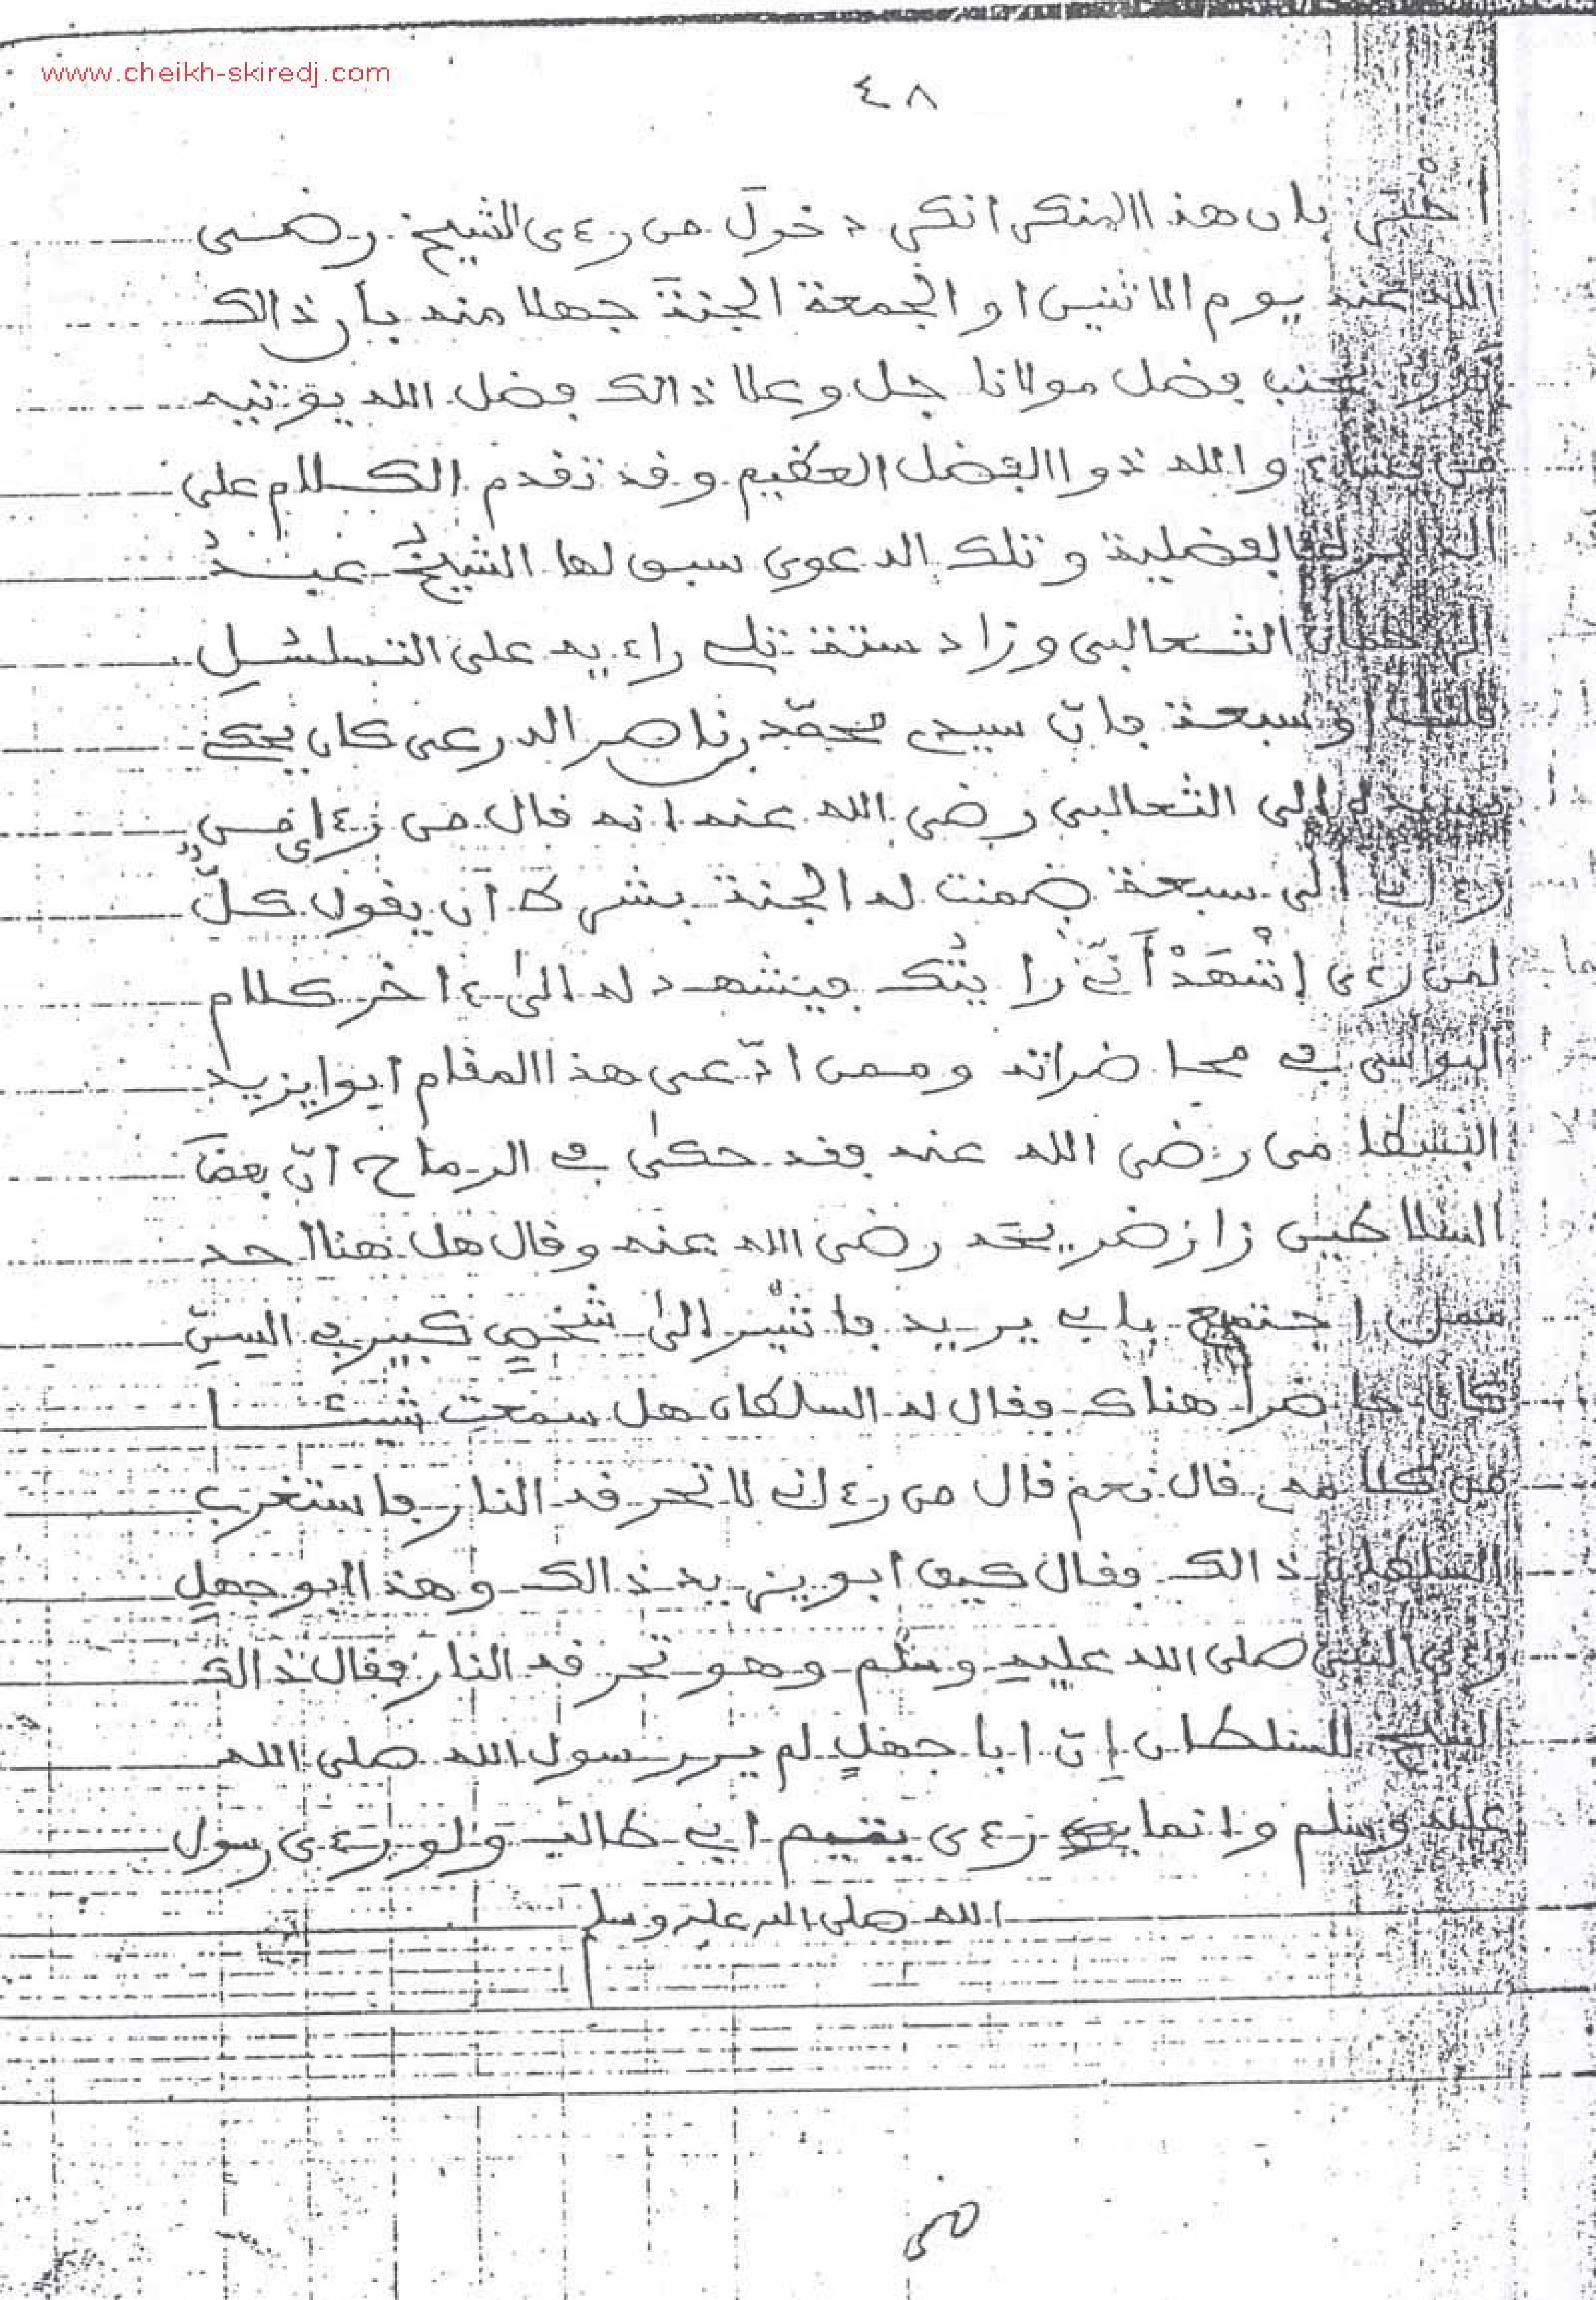 www.cheikh-skiredj.com
٤٨
بان هذا المنكر انكر دخول من رءى الشيخ رضى
الله عنه يوم الاثنين او الجمعة الجنة جهلا منه بأن ذالك
بفضل مولانا جل وعلا ذالك فضل الله يوتيه
من يشاء والله ذو االفضل العظيم وقد تقدم الكلام على
بالفضلية وتلك الدعوى سبق لها الشيخُ عبدُ
الرحمان الثعالبى وزاد ستة تلى راءيه على التسلسل
او سبعة فان سيدى محمّد بن ناصر الدرعى كان يحكى
بسنده الى الثعالبى رضى الله عنه انه قال من رءا من
رءانى الى سبعة ضمنت له الجنة بشرط أن يقول كلٌّ
لمن رءى إشْهَدْ أَنِّى رايتُك فيشهد له الىٰ ءاخر كلام
اليوسى فى محاضراته وممن ادّعى هذا المقام ابوايزيد
البسطامى رضى الله عنه فقد حكىٰ فى الرماح انّ بعضَ
السلاطين زار ضريحَه رضى الله عنه وقال هل هنا احد
ممن اجتمع بابى يزيد فاشير الىٰ شخصٍ كبير فى السنّ
كان حاضرا هناك فقال له السلطان هل سمعت شيئا
من كلامه قال نعم قال من رءانى لا تحرقه النار فاستغرب
السلطان ذالك فقال كيف ابو يزيد ذالك وهذا ابو جهلٍ
رءى النبى صلى الله عليه وسلم وهو تحرقه النار فقال ذالك
الشيخ للسلطان إنّ ابا جهلٍ لم ير رسول الله صلى الله
عليه وسلم وانما رءى يتيم ابى طالب ولو رءى رسول
الله صلى الله عليه وسلم